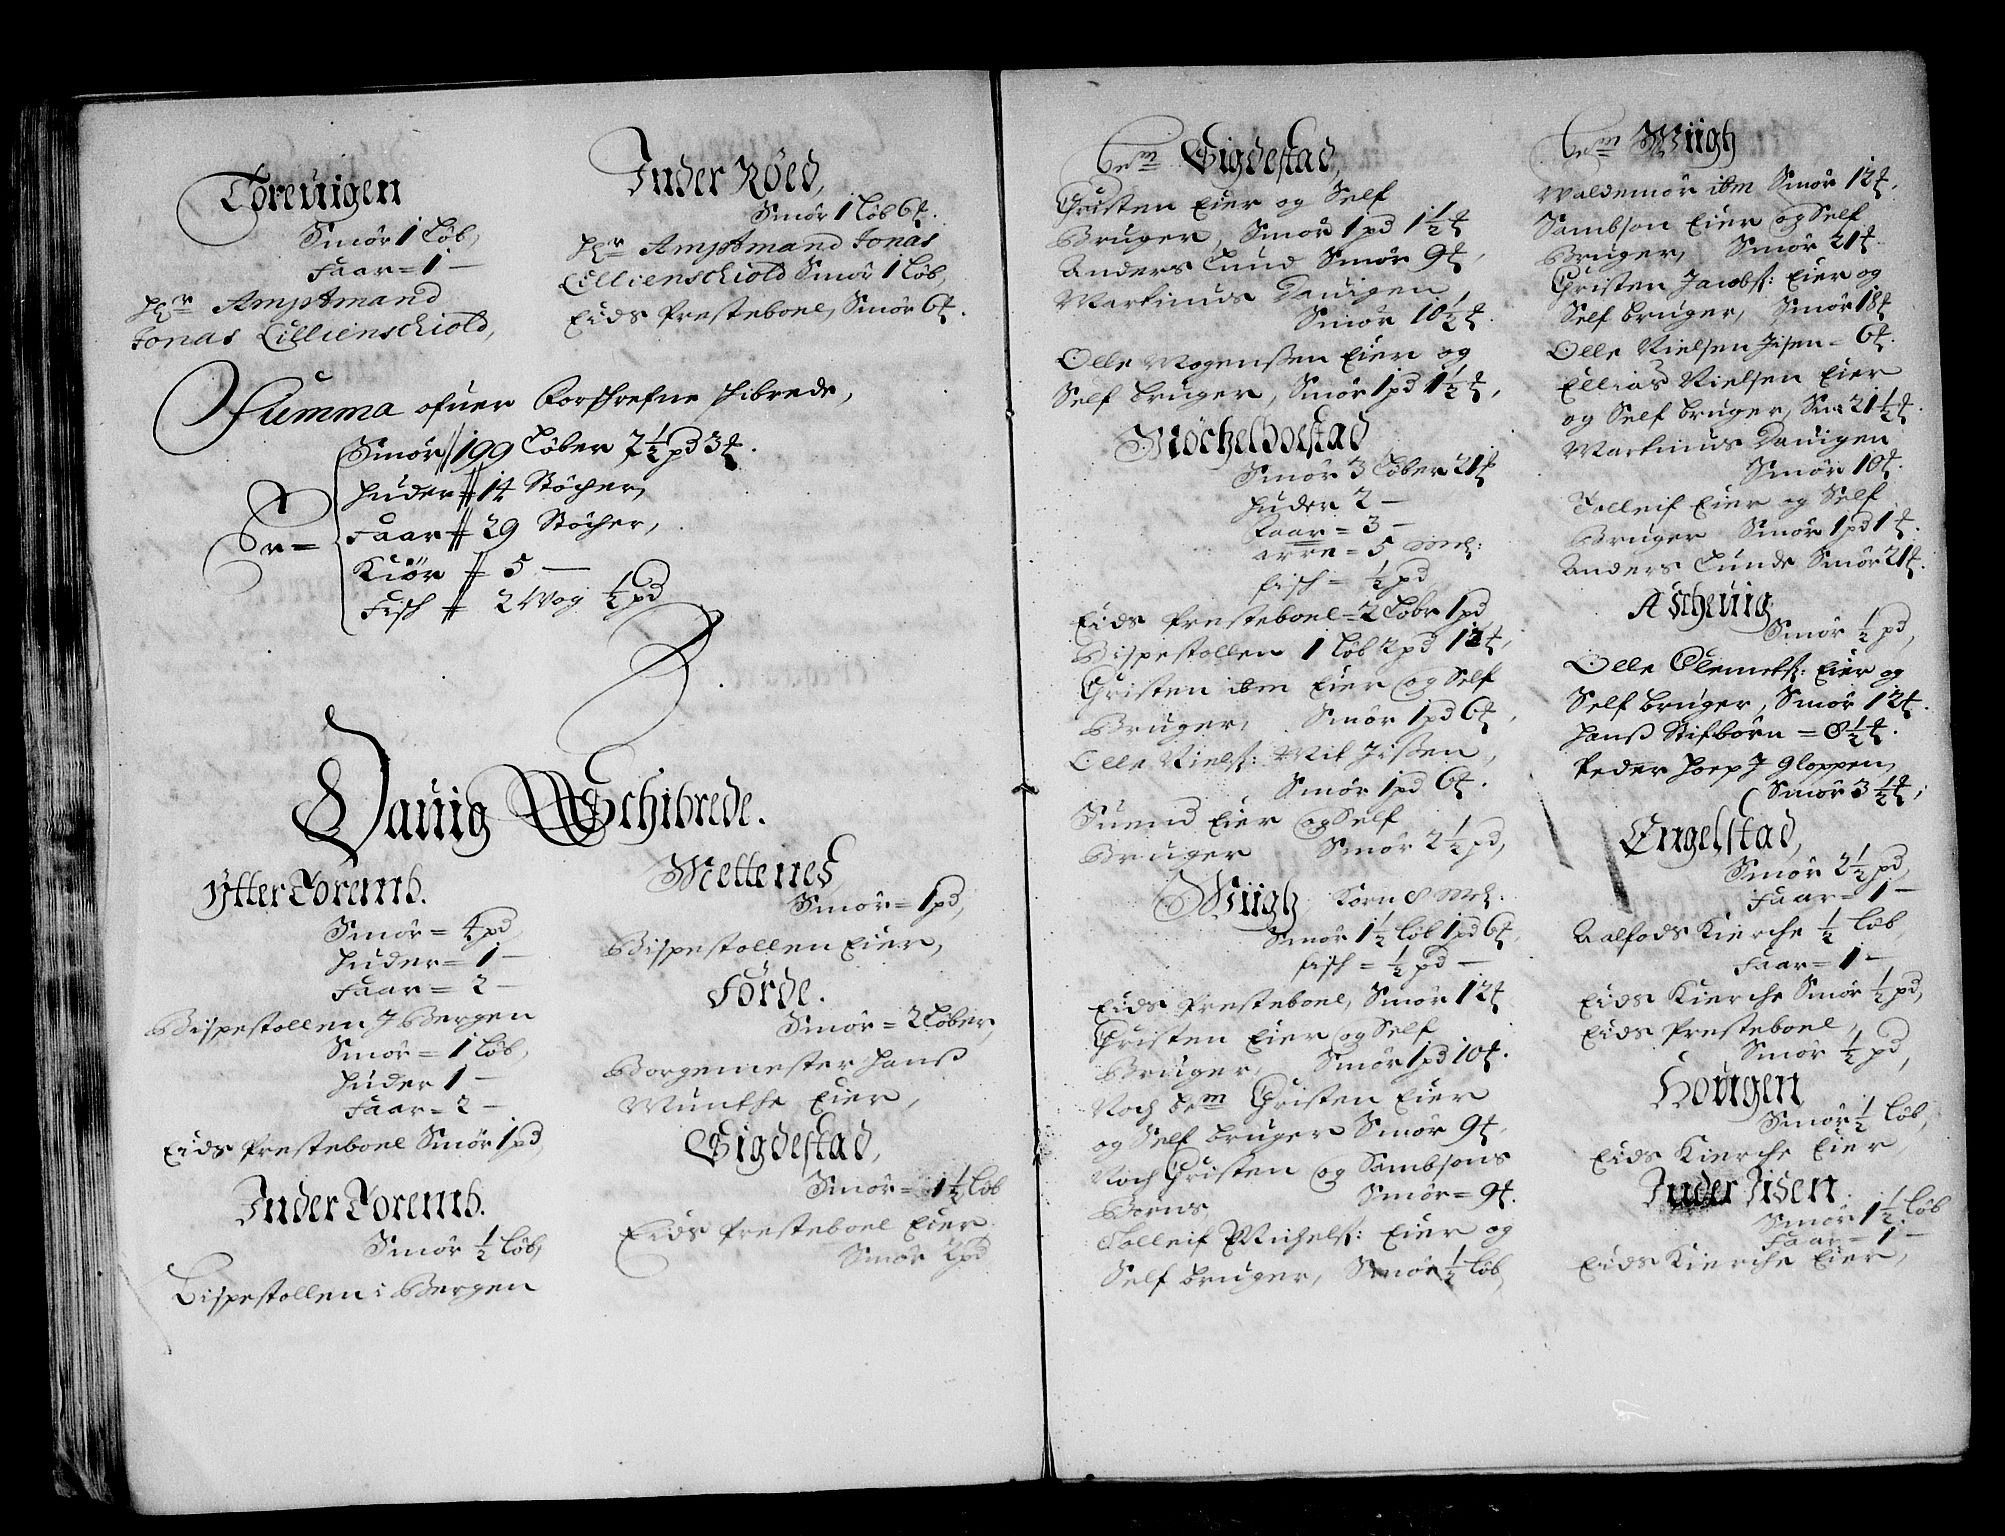 Torevigen
Smör 1 Løb,
Faar = 1 —
Hr Ampstmand
Jonas Lillienschiold,
Inder Röed,
Smör 1 Løb 6 ℔.
Hr Ampstmand Jonas
Lillienschiold Smör 1 Løb,
Eids Presteboel, Smör 6 ℔.
Summa ofuer Forschrefne schibrede,
Smör // 199 Løber 2½ pd 3 ℔.
Huder // 14 Støcher,
Er = Faar // 29 Støcher,
Kiör // 5 —
Fisch // 2 Wog ½ pd
Dauig Schibrede.
Ytter Toremb.
Smör = 4 pd
Huder = 1 —
Faar = 2 —
Bispestollen J Bergen
Smör = 1 Løb,
Huder 1 —
Faar = 2 —
Eids Presteboel Smör 1 pd
Inder Toremb.
Smör ½ Løb,
Bispestollen i Bergen
Mettenes,
Smör = 1 pd,
Bispestollen Eier,
Förde.
Smör = 2 Løber,
Borgemester Hanß
Munthe Eier,
Gigdestad,
Smör = 1½ Løb
Eids Presteboel Eier
Smör 2 pd
bem Gigdestad,
Christen Eier og Self
Bruger, Smör 1 pd 1½ ℔
Anders Lund Smör 9 ℔,
Martinus Dauigen,
Smör 10½ ℔.
Olle Mogensßen Eier og
Self bruger, Smör 1 pd 1½ ℔,
Möchelbostad
Smör 3 Løber 21 ℔
Huder 2 —
Faar = 3 —
= 5 Mel:
Fisch = ½ pd,
Eids Presteboel = 2 Løbr 1 pd
Bispestollen 1 Løb 2 pd 12 ℔,
Christen ibm Eier og Self
Bruger, Smör 1 pd 6 ℔,
Olle Niels: Mit Jißen,
Smör 1 pd 6 ℔.
Suend Eier og Self
Bruger Smör 2½ pd,
Myigh, Korn 8 Mel.
Smör 1½ Løb 1 pd 6 ℔,
Fisch = ½ pd —
Eids Presteboel, Smör 12 ℔
Christen Eier og Self
Bruger, Smör 1 pd 10 ℔.
Noch bem Christen Eier
og Self bruger Smör 9 ℔,
Noch Christen og Sambsons
Børns Smör = 9 ℔.
Tolleif Michels: Eier og
Self bruger, Smör ½ Løb,
bem Myigh
Waldemor ibm Smör 12 ℔,
Sambson Eier og Self
Bruger, Smör 21 ℔.
Christen Jacobs: Eier og
Self bruger, Smör 18 ℔
Olle Nielsen Jisen = 6 ℔.
Ellias Nielsen Eier
og Self bruger, Smr 21½ ℔.
Martinus Dauigen
Smör 10 ℔.
Tolleif Eier og Self
Bruger Smör 1 pd 1 ℔.
Anders Lunde Smör 21 ℔.
Ascheuig
Smör ½ pd,
Olle Clemets: Eier og
Self bruger, Smör 12 ℔.
Hanß Stifbørn = 8½ ℔.
Peder Hoep J Gloppen,
Smör 3½ ℔,
Engelstad,
Smör 2½ pd,
Faar = 1 —
Aalfods Kierche ½ Løb,
Faar = 1 —
Eids Kierche Smör ½ pd,
Eids Presteboel,
Smör ½ pd,
Hougen
Smör ½ Løb,
Eids Kierche Eier,
Inder Jisen
Smör 1½ Løb
Faar = 1 —
Eids Kierche Eier,